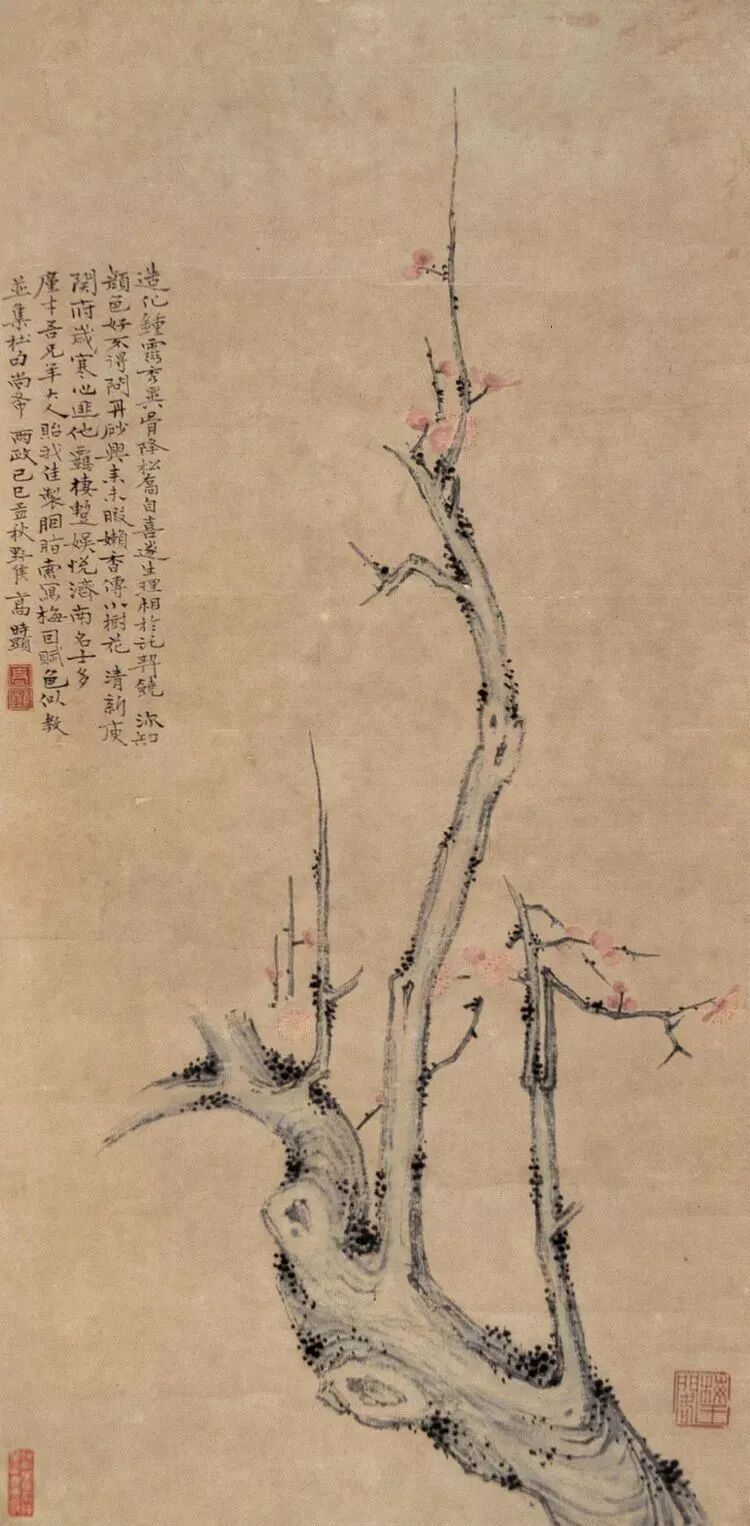 造化鍾靈秀異骨降松喬自喜遂生理相於託契饒 深知
顏色好不得問丹砂興來未暇嬾香傳小樹花 清新庾
開府歲寒心匪他羈棲整娛悅濟南名士多
廑才吾兄年大人貽我佳製胭脂索寫梅因賦色似教
並集杜句尚希 兩政己巳孟秋野侯高時顯